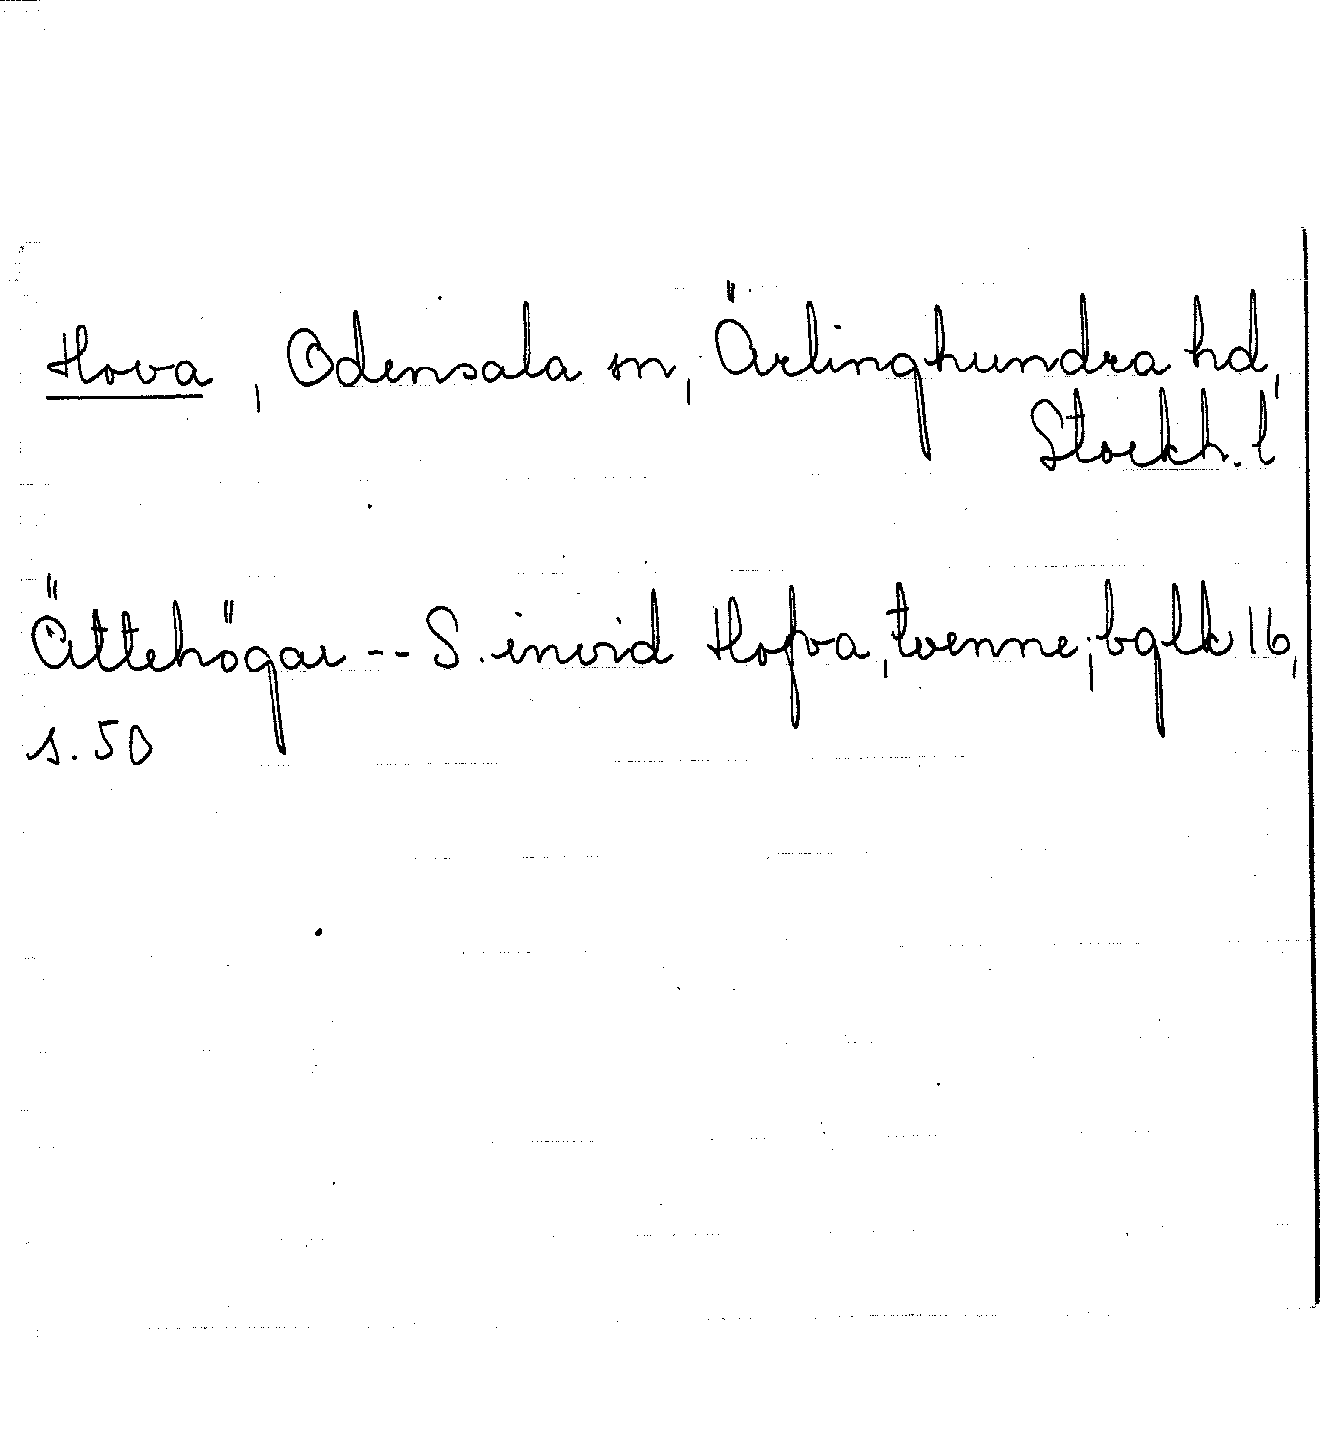 Hova, Odensala sn, Ärlinghundra hd,
Stockh. l
Ättehögar -- S. invid Hofva, tvenne; bglk 16,
s. 50